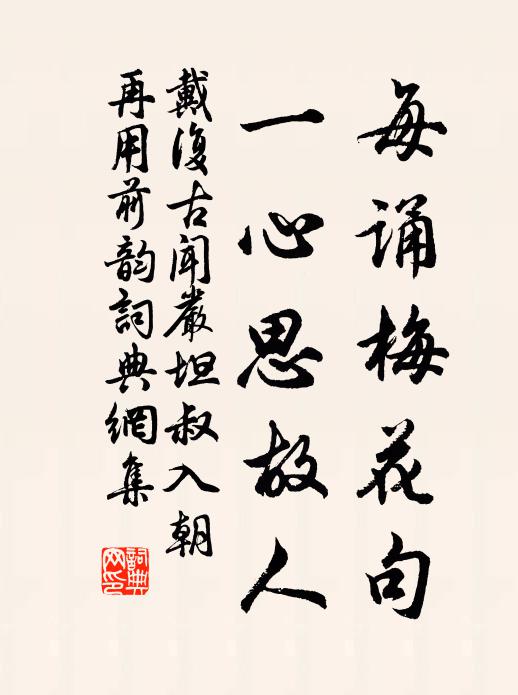 每诵梅花句
一心思故人
戴復古闻嚴坦叔入朝
再用前韵詞典網集
詞典
网印